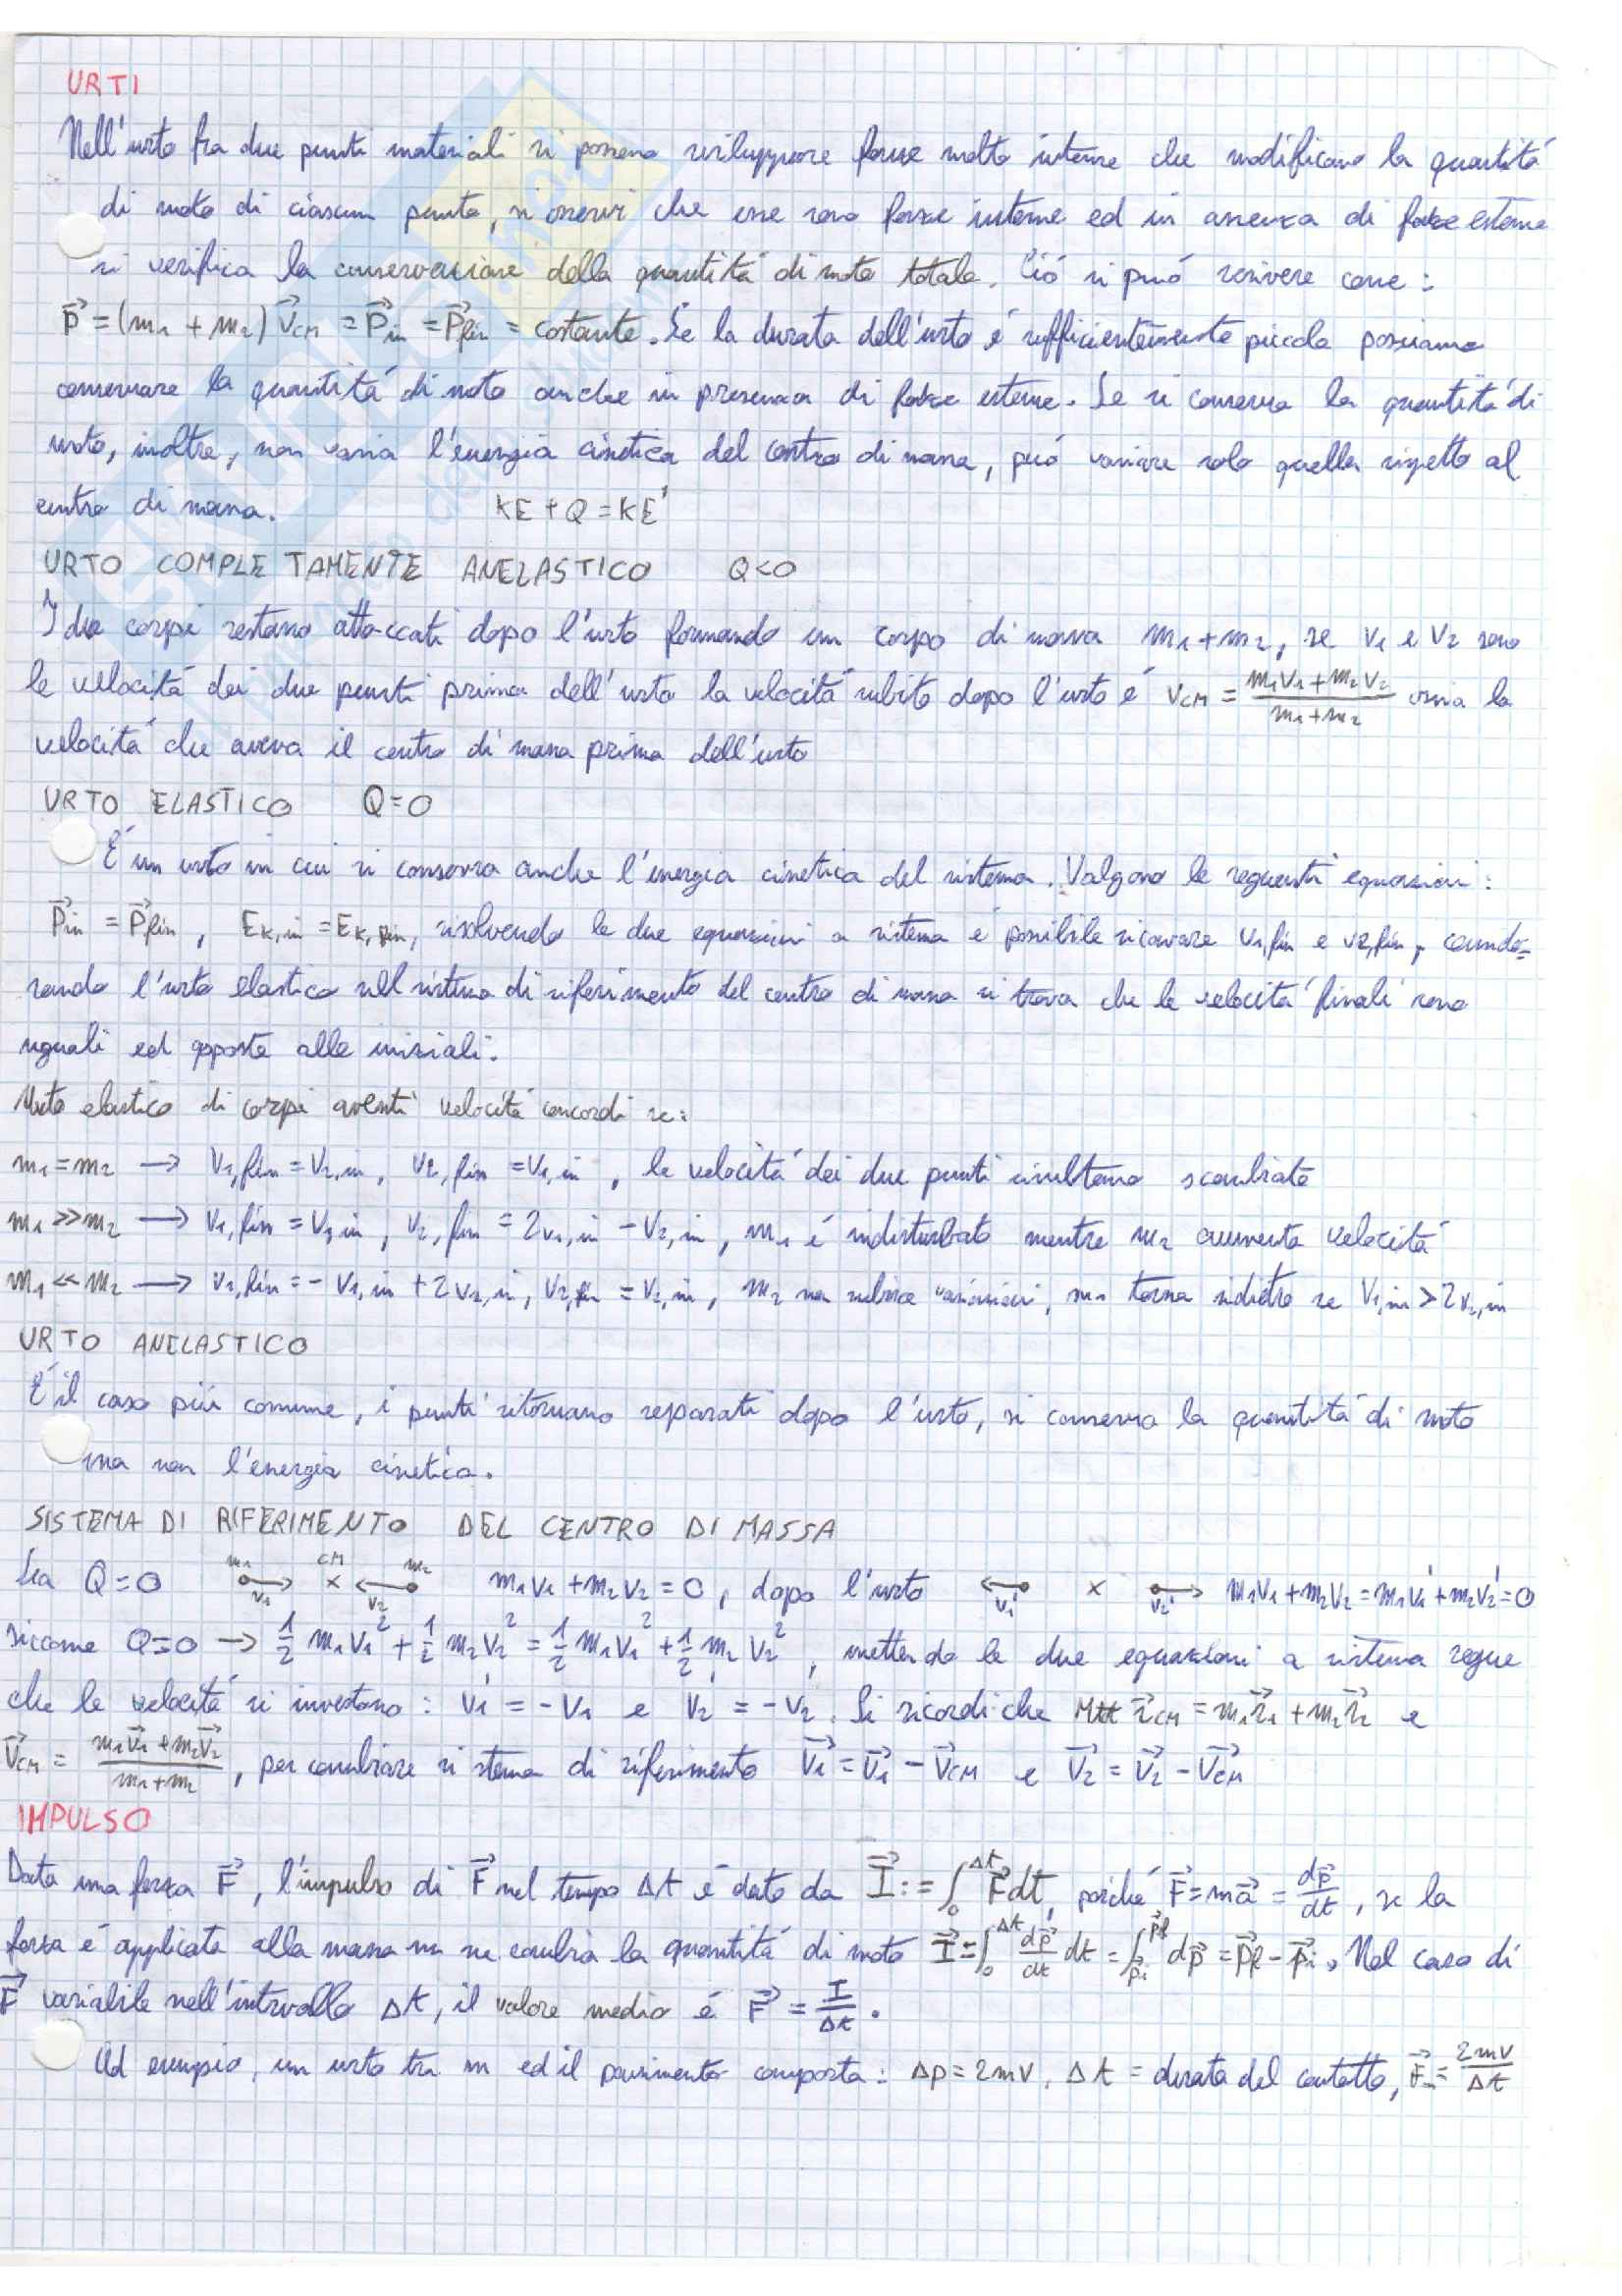 URTI
Nell'urto fra due punti materiali si possono sviluppare forze molto intense che modificano la quantitá
di moto di ciascun punto, si osservi che esse sono forze interne ed in assenza di forze esterne
si verifica la conservazione della quantitá di moto totale. Ció si puó scrivere come:
P⃗ = (m₁ + m₂) V⃗cm = P⃗in = P⃗fin = costante. Se la durata dell'urto é sufficientemente piccola possiamo
conservare la quantitá di moto anche in presenza di forze esterne. Se si conserva la quantitá di
moto, inoltre, non varia l'energia cinetica del centro di massa, puó variare solo quella rispetto al
centro di massa. KE + Q = KE'
URTO COMPLETAMENTE ANELASTICO Q<0
I due corpi restano attaccati dopo l'urto formando un corpo di massa m₁+m₂, se v₁ e v₂ sono
le velocitá dei due punti prima dell'urto la velocitá subito dopo l'urto é vcm = (m₁v₁+m₂v₂)/(m₁+m₂) ossia la
velocitá che aveva il centro di massa prima dell'urto
URTO ELASTICO Q=0
É un urto in cui si conserva anche l'energia cinetica del sistema. Valgono le seguenti equazioni:
P⃗in = P⃗fin, Ek,in = Ek,fin, risolvendo le due equazioni a sistema é possibile ricavare v₁,fin e v₂,fin, conside=
rando l'urto elastico nel sistema di riferimento del centro di massa si trova che le velocitá finali sono
uguali ed opposte alle iniziali.
Urto elastico di corpi aventi velocitá concordi se:
m₁=m₂ → v₁,fin = v₂,in, v₂,fin = v₁,in, le velocitá dei due punti risultano scambiate
m₁≫m₂ → v₁,fin = v₁,in, v₂,fin = 2v₁,in − v₂,in, m₁ é indisturbato mentre m₂ aumenta velocitá
m₁≪m₂ → v₁,fin = −v₁,in + 2v₂,in, v₂,fin = v₂,in, m₂ non subisce variazioni, m₁ torna indietro se v₁,in > 2v₂,in
URTO ANELASTICO
É il caso piú comune, i punti ritornano separati dopo l'urto, si conserva la quantitá di moto
ma non l'energia cinetica.
SISTEMA DI RIFERIMENTO DEL CENTRO DI MASSA
m₁ CM m₂
Sia Q=0 × m₁v₁ + m₂v₂ = 0, dopo l'urto × m₁v₁ + m₂v₂ = m₁v₁' + m₂v₂' = 0
v₁ v₂ v₁' v₂'
siccome Q=0 → ½ m₁v₁² + ½ m₂v₂² = ½ m₁v₁'² + ½ m₂v₂'², mettendo le due equazioni a sistema segue
che le velocitá si invertono: v₁' = −v₁ e v₂' = −v₂. Si ricordi che r⃗cm = m₁r⃗₁ + m₂r⃗₂ e
V⃗cm = (m₁v⃗₁ + m₂v⃗₂)/(m₁+m₂), per cambiare sistema di riferimento V⃗₁ = V⃗₁ − V⃗cm e V⃗₂ = V⃗₂ − V⃗cm
IMPULSO
Data una forza F⃗, l'impulso di F⃗ nel tempo Δt é dato da I⃗ := ∫₀^Δt F⃗dt, poiché F⃗ = ma⃗ = dp⃗/dt, se la
forza é applicata alla massa m ne cambia la quantitá di moto I⃗ = ∫₀^Δt dp⃗/dt dt = ∫p⃗i^p⃗f dp⃗ = p⃗f − p⃗i. Nel caso di
F⃗ variabile nell'intervallo Δt, il valore medio é F⃗ = I/Δt.
Ad esempio, un urto tra m ed il pavimento comporta: Δp = 2mv, Δt = durata del contatto, F⃗m = 2mv/Δt